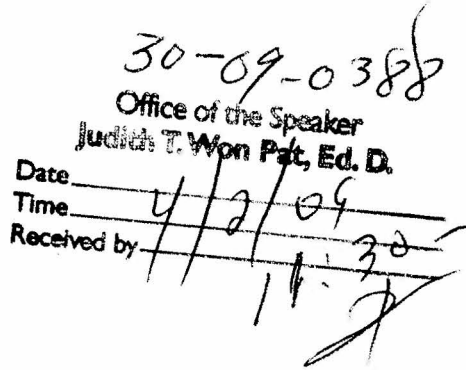 30-09-0388
Office of the Speaker
Judith T. Won Pat, Ed. D.
Date 4/2/09
Time 11:30
Received by